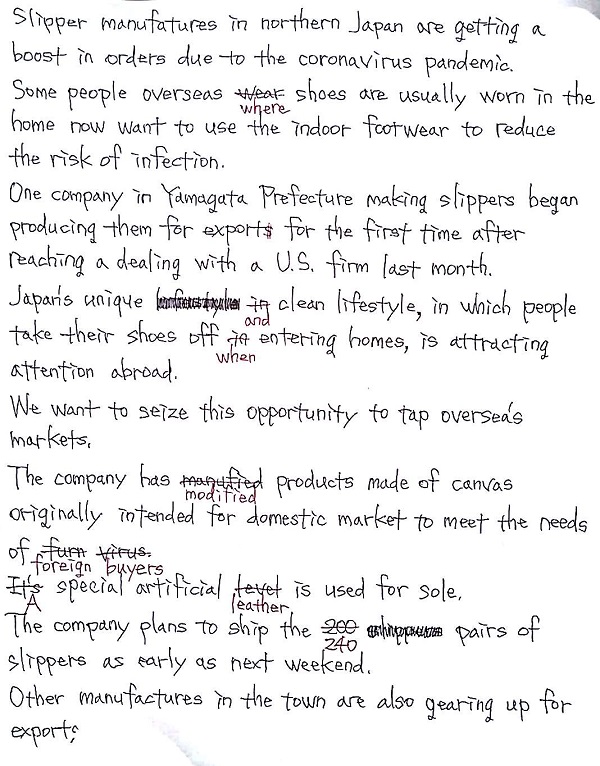 Slipper manufatures in northern Japan are getting a
boost in orders due to the coronavirus pandemic.
Some people overseas wear shoes are usually worn in the
where
home now want to use the indoor footwear to reduce
the risk of infection.
One company in Yamagata Prefecture making slippers began
producing them for exports for the first time after
reaching a dealing with a U.S. firm last month.
Japan's unique in clean lifestyle, in which people
and
take their shoes off in entering homes, is attracting
when
attention abroad.
We want to seize this opportunity to tap oversea's
markets.
The company has manufied products made of canvas
modified
originally intended for domestic market to meet the needs
of furn virus.
foreign buyers
It's special artificial level is used for sole.
A leather
The company plans to ship the 200 pairs of
240
slippers as early as next weekend.
Other manufactures in the town are also gearing up for
export;